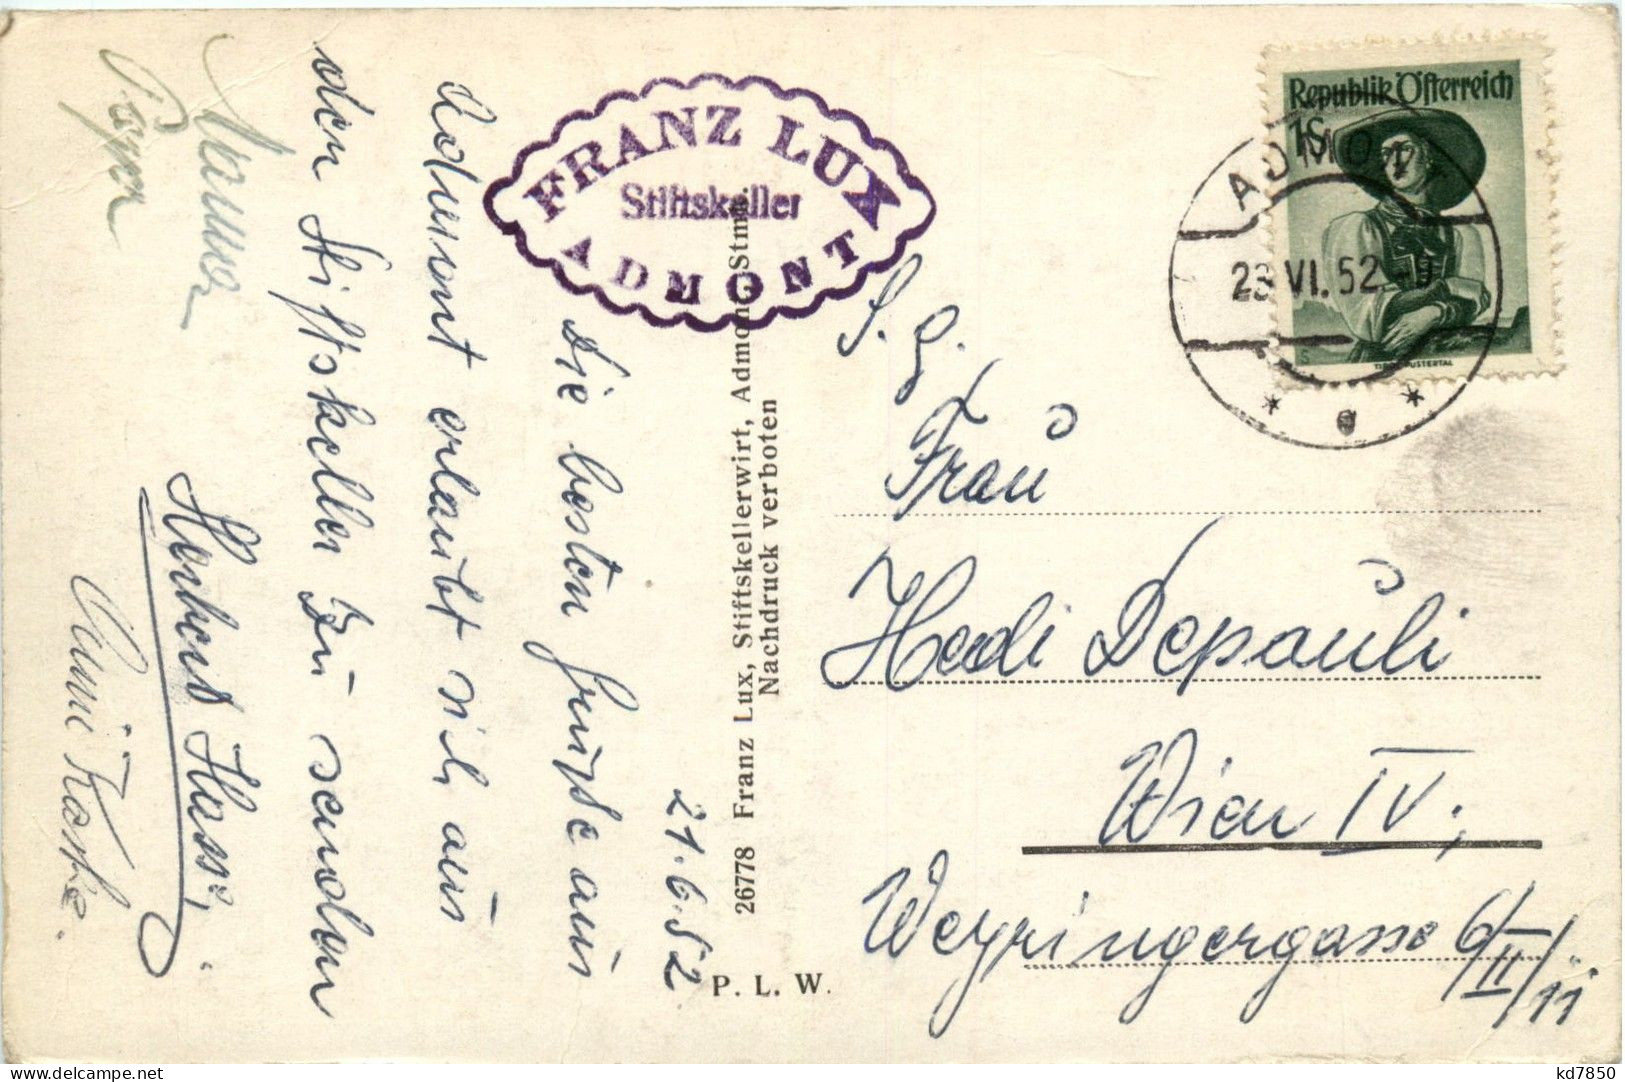 21.6.52
Die besten Grüße aus
Admont erlaubt sich aus
dem Stiftskeller zu senden
Herbert Hess,
FRANZ LUX
Stiftskeller
ADMONT
26778 Franz Lux, Stiftskellerwirt, Admont, Stmk.
Nachdruck verboten
P. L. W.
Republik Österreich
1S
TIROL PUSTERTAL
ADMONT
23.VI.52.-9
* e *
S. g.
Frau
Hedi Depauli
Wien IV,
Weyringergasse 6/II/11
delcampe.net
kd7850